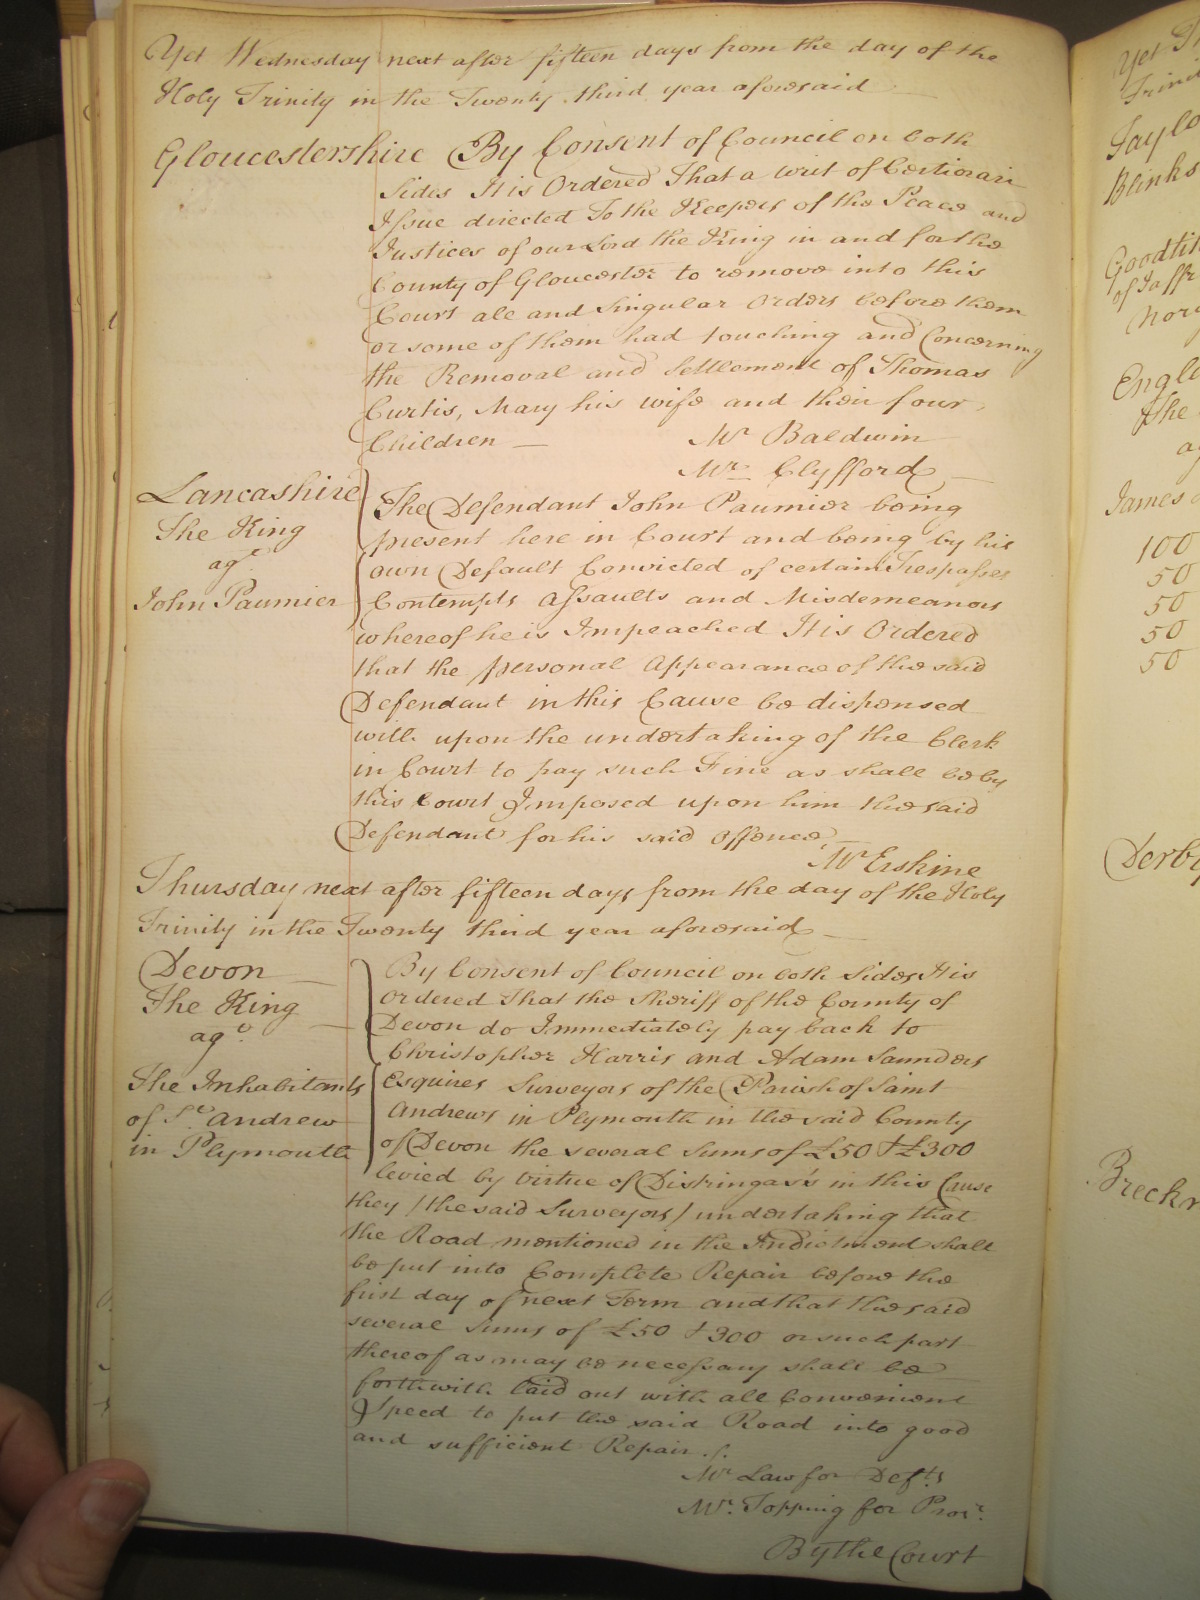 Yet Wednesday next after fifteen days from the day of the
Holy Trinity in the Twenty third year aforesaid
Gloucestershire By Consent of Council on both
Sides It is Ordered That a writ of Certiorari
Issue directed To the Keepers of the Peace and
Justices of our Lord the King in and for the
County of Gloucester to remove into this
Court all and Singular Orders before them
or some of them had touching and Concerning
the Removal and Settlement of Thomas
Curtis, Mary his wife and their four
Children —
Mr Baldwin
Mr Clyfford
Lancashire
The King
agt
John Paumier
The Defendant John Paumier being
present here in Court and being by his
own Default Convicted of certain Trespasses
Contempts Assaults and Misdemeanors
whereof he is Impeached It is Ordered
that the personal Appearance of the said
Defendant in this Cause be dispensed
with upon the undertaking of the Clerk
in Court to pay such Fine as shall be by
this Court Imposed upon him the said
Defendant for his said Offence
Mr Erskine
Thursday next after fifteen days from the day of the Holy
Trinity in the Twenty third year aforesaid
Devon
The King
agt.
The Inhabitants
of St. Andrew
in Plymouth
By Consent of Council on both Sides It is
Ordered That the Sheriff of the County of
Devon do Immediately pay back to
Christopher Harris and Adam Saunders
Esquires Surveyors of the Parish of Saint
Andrews in Plymouth in the said County
of Devon the several Sums of £50 & £300
levied by virtue of Distringas's in this Cause
they /the said Surveyors/ undertaking that
the Road mentioned in the Indictment shall
be put into Complete Repair before the
first day of next Term and that the said
several Sums of £50 & 300 or such part
thereof as may be necessary shall be
forthwith laid out with all Convenient
Speed to put the said Road into good
and sufficient Repair
Mr Law for Defts
Mr. Topping for Pror.
By the Court
Yet
Trini
Taylo
Blinks
Goodtit
of Jaffr
Engl
The
James
100
50
50
50
50
Derby
Breckn